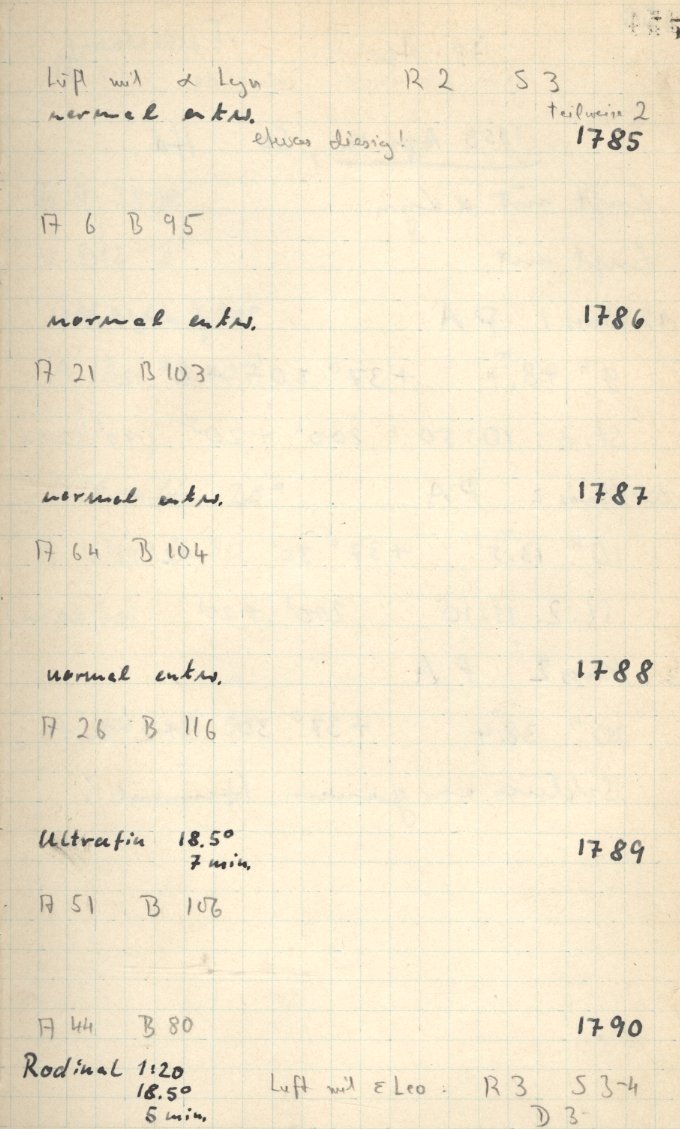 Luft mit α Lyn R 2 S 3
normal entw. teilweise 2
etwas diesig! 1785
A 6 B 95
normal entw. 1786
A 21 B 103
normal entw. 1787
A 64 B 104
normal entw. 1788
A 26 B 116
Ultrafin 18.5° 1789
7 min.
A 51 B 106
A 44 B 80 1790
Rodinal 1:20
18.5° Luft mit ε Leo: R 3 S 3-4
5 min. D 3